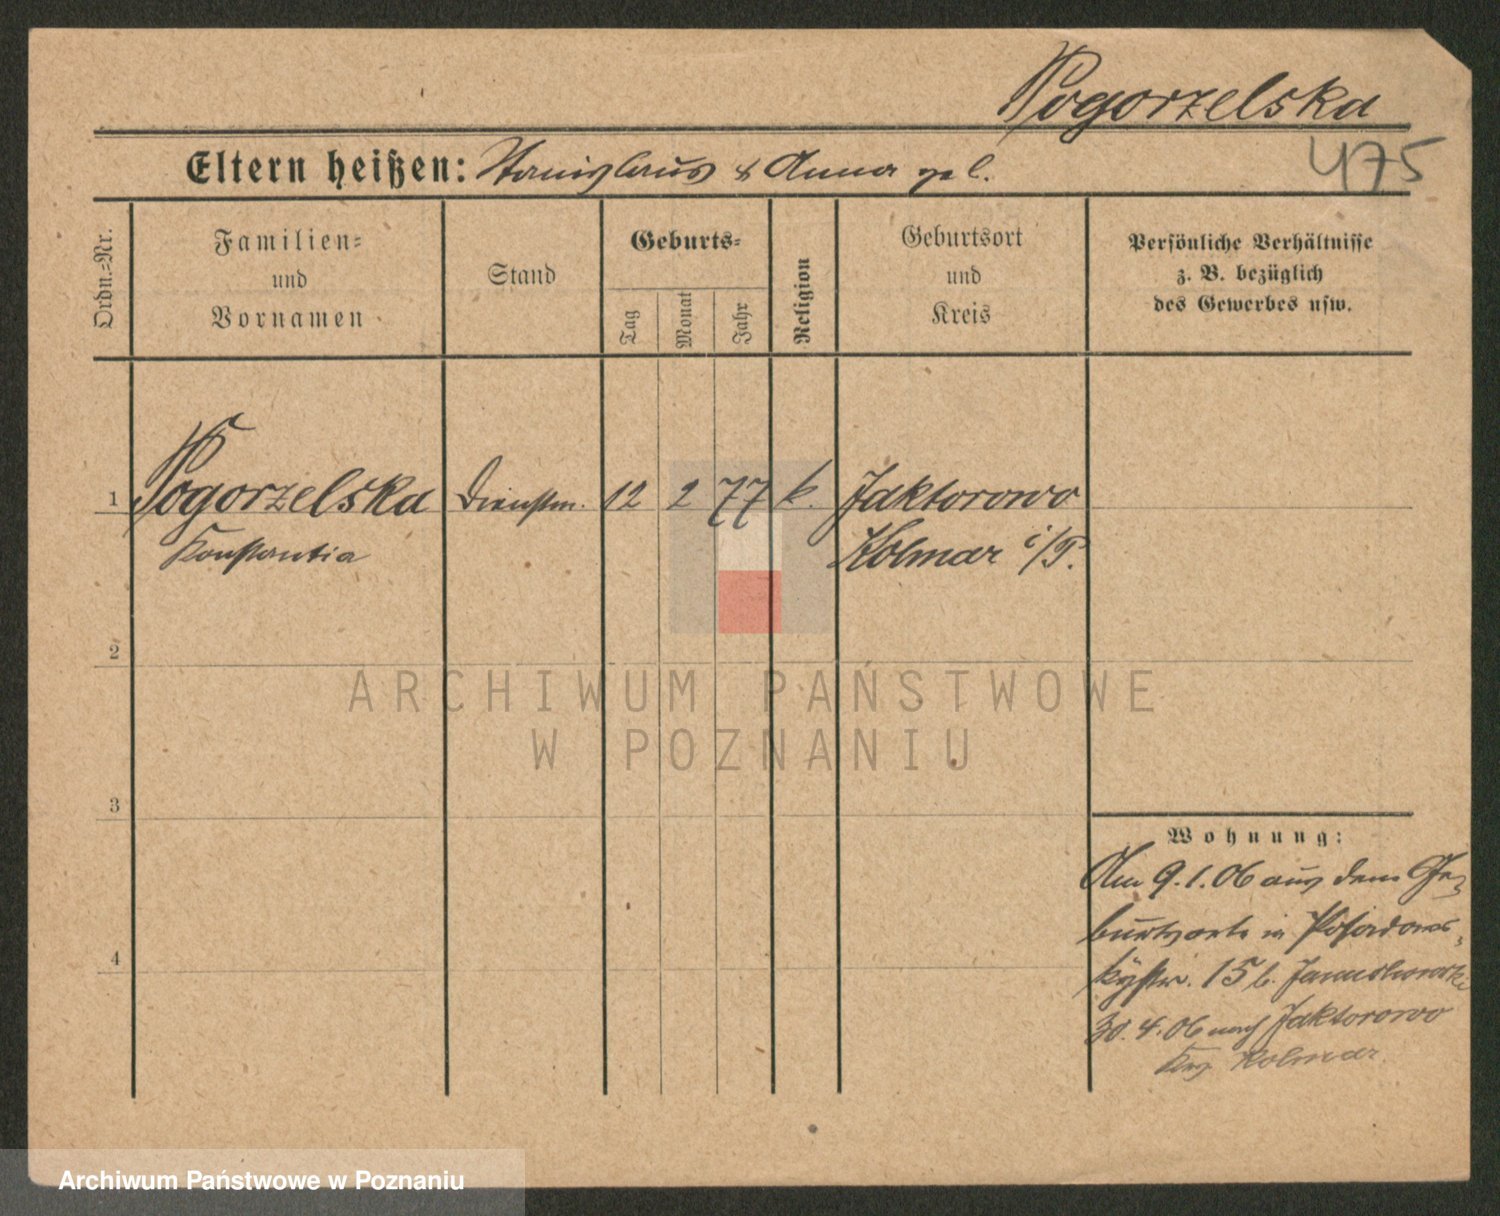 Pogorzelska
475
Eltern heißen: Stanislaus & Anna gel.
Ordn.=Nr.
Familien=
und
Vornamen
Stand
Geburts=
Tag
Monat
Jahr
Religion
Geburtsort
und
Kreis
Persönliche Verhältnisse
z. B. bezüglich
des Gewerbes usw.
1 Pogorzelska Dienstm. 12 2 77 k. Jaktorowo
Konstantia Kolmar i/P.
2
ARCHIWUM PAŃSTWOWE
W POZNANIU
3
Wohnung:
Am 9.1.06 aus dem Ge-
burtsorte in Posadows-
kystr. 15 b.
4
30.4.06 nach Jaktorowo
Krs Kolmar.
Archiwum Państwowe w Poznaniu